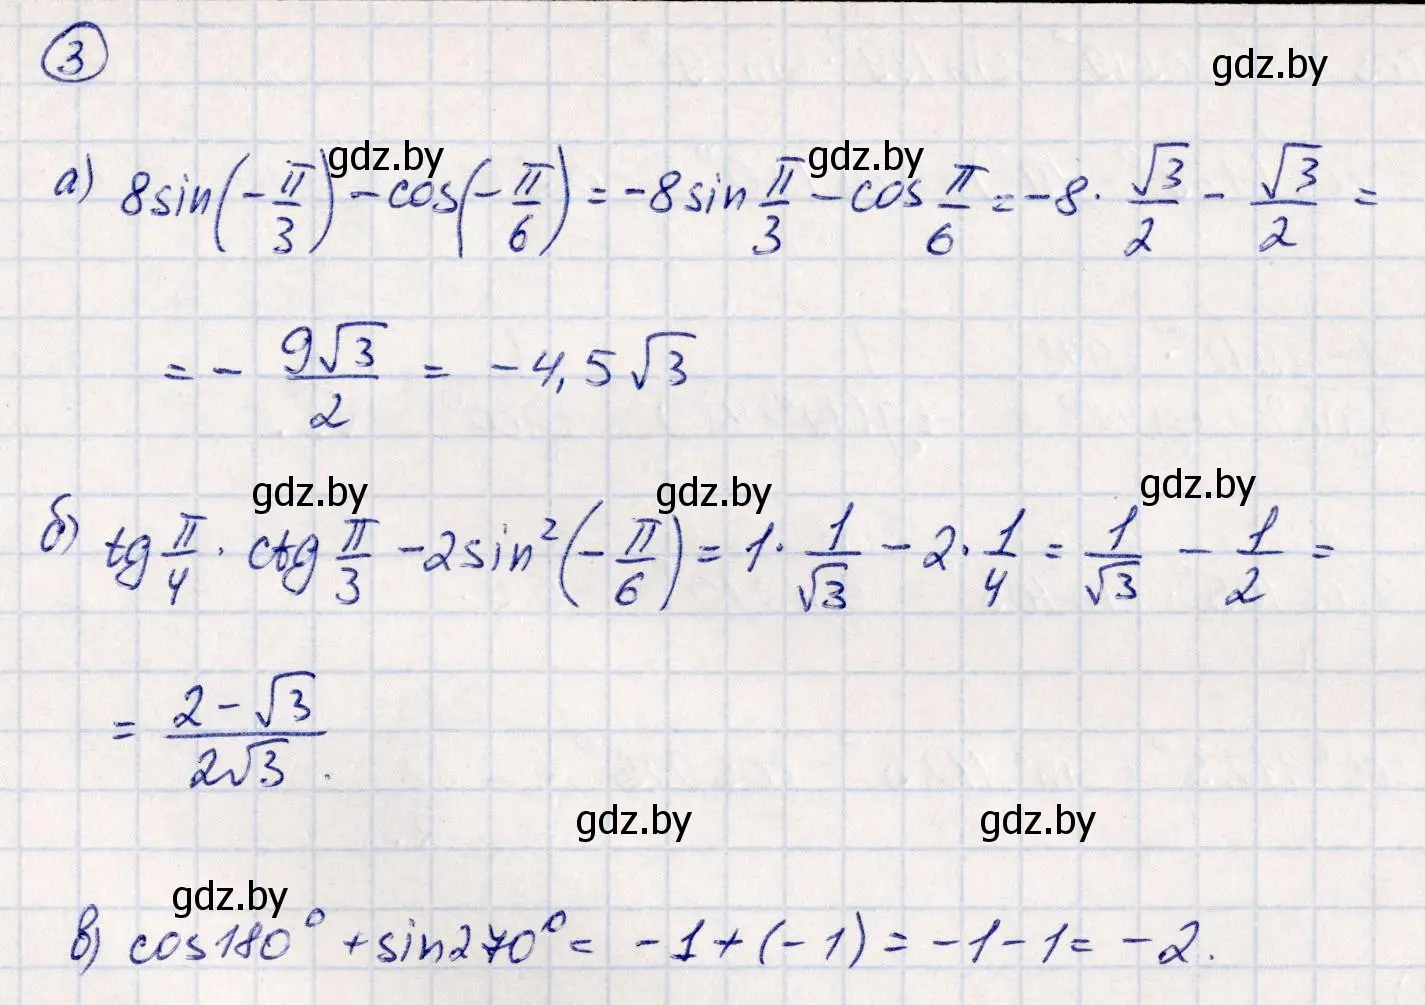 3
gdz.by
а) 8sin(-π/3) - cos(-π/6) = -8sin π/3 - cos π/6 = -8 · √3/2 - √3/2 =
gdz.by gdz.by
= - 9√3/2 = -4,5√3
gdz.by gdz.by gdz.by
б) tg π/4 · ctg π/3 - 2sin²(-π/6) = 1 · 1/√3 - 2 · 1/4 = 1/√3 - 1/2 =
= (2 - √3)/(2√3).
gdz.by gdz.by
gdz.by
в) cos180° + sin270° = -1 + (-1) = -1 - 1 = -2.